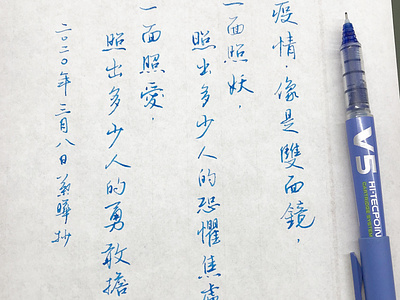 疫情，像是雙面鏡，
一面照妖，
照出多少人的恐懼焦慮
一面照愛，
照出多少人的勇敢擔
二〇二〇年三月八日 抄
V5
HI-TECPOIN
CARTRIDGE SYSTEM